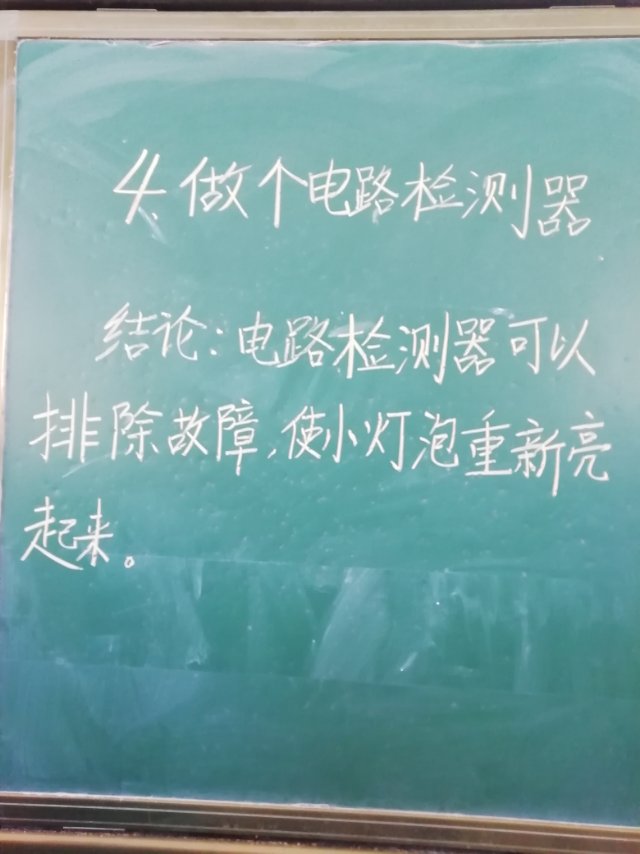 4、做个电路检测器
结论：电路检测器可以
排除故障，使小灯泡重新亮
起来。